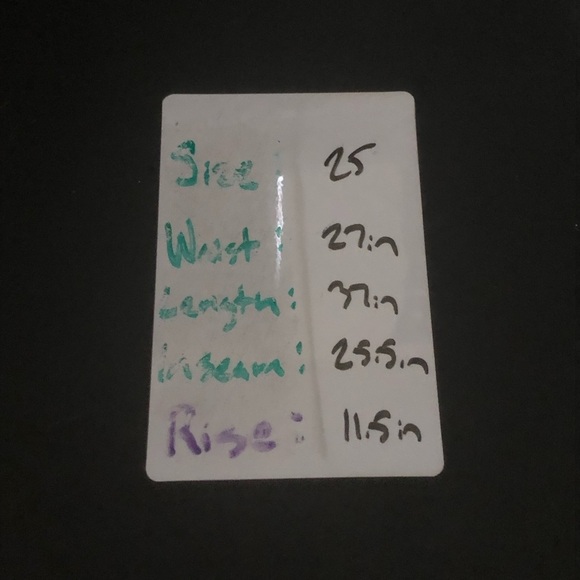 Size: 25
Waist: 27in
Length: 37in
Inseam: 25.5in
Rise: 11.5in